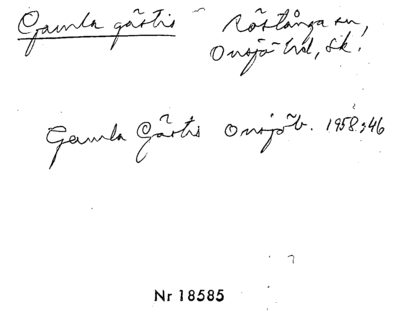 Gamla gästis Röstånga sn,
Onsjö hd, Sk.
Gamla Gästis Onsjöb. 1958 s 46
Nr 18585